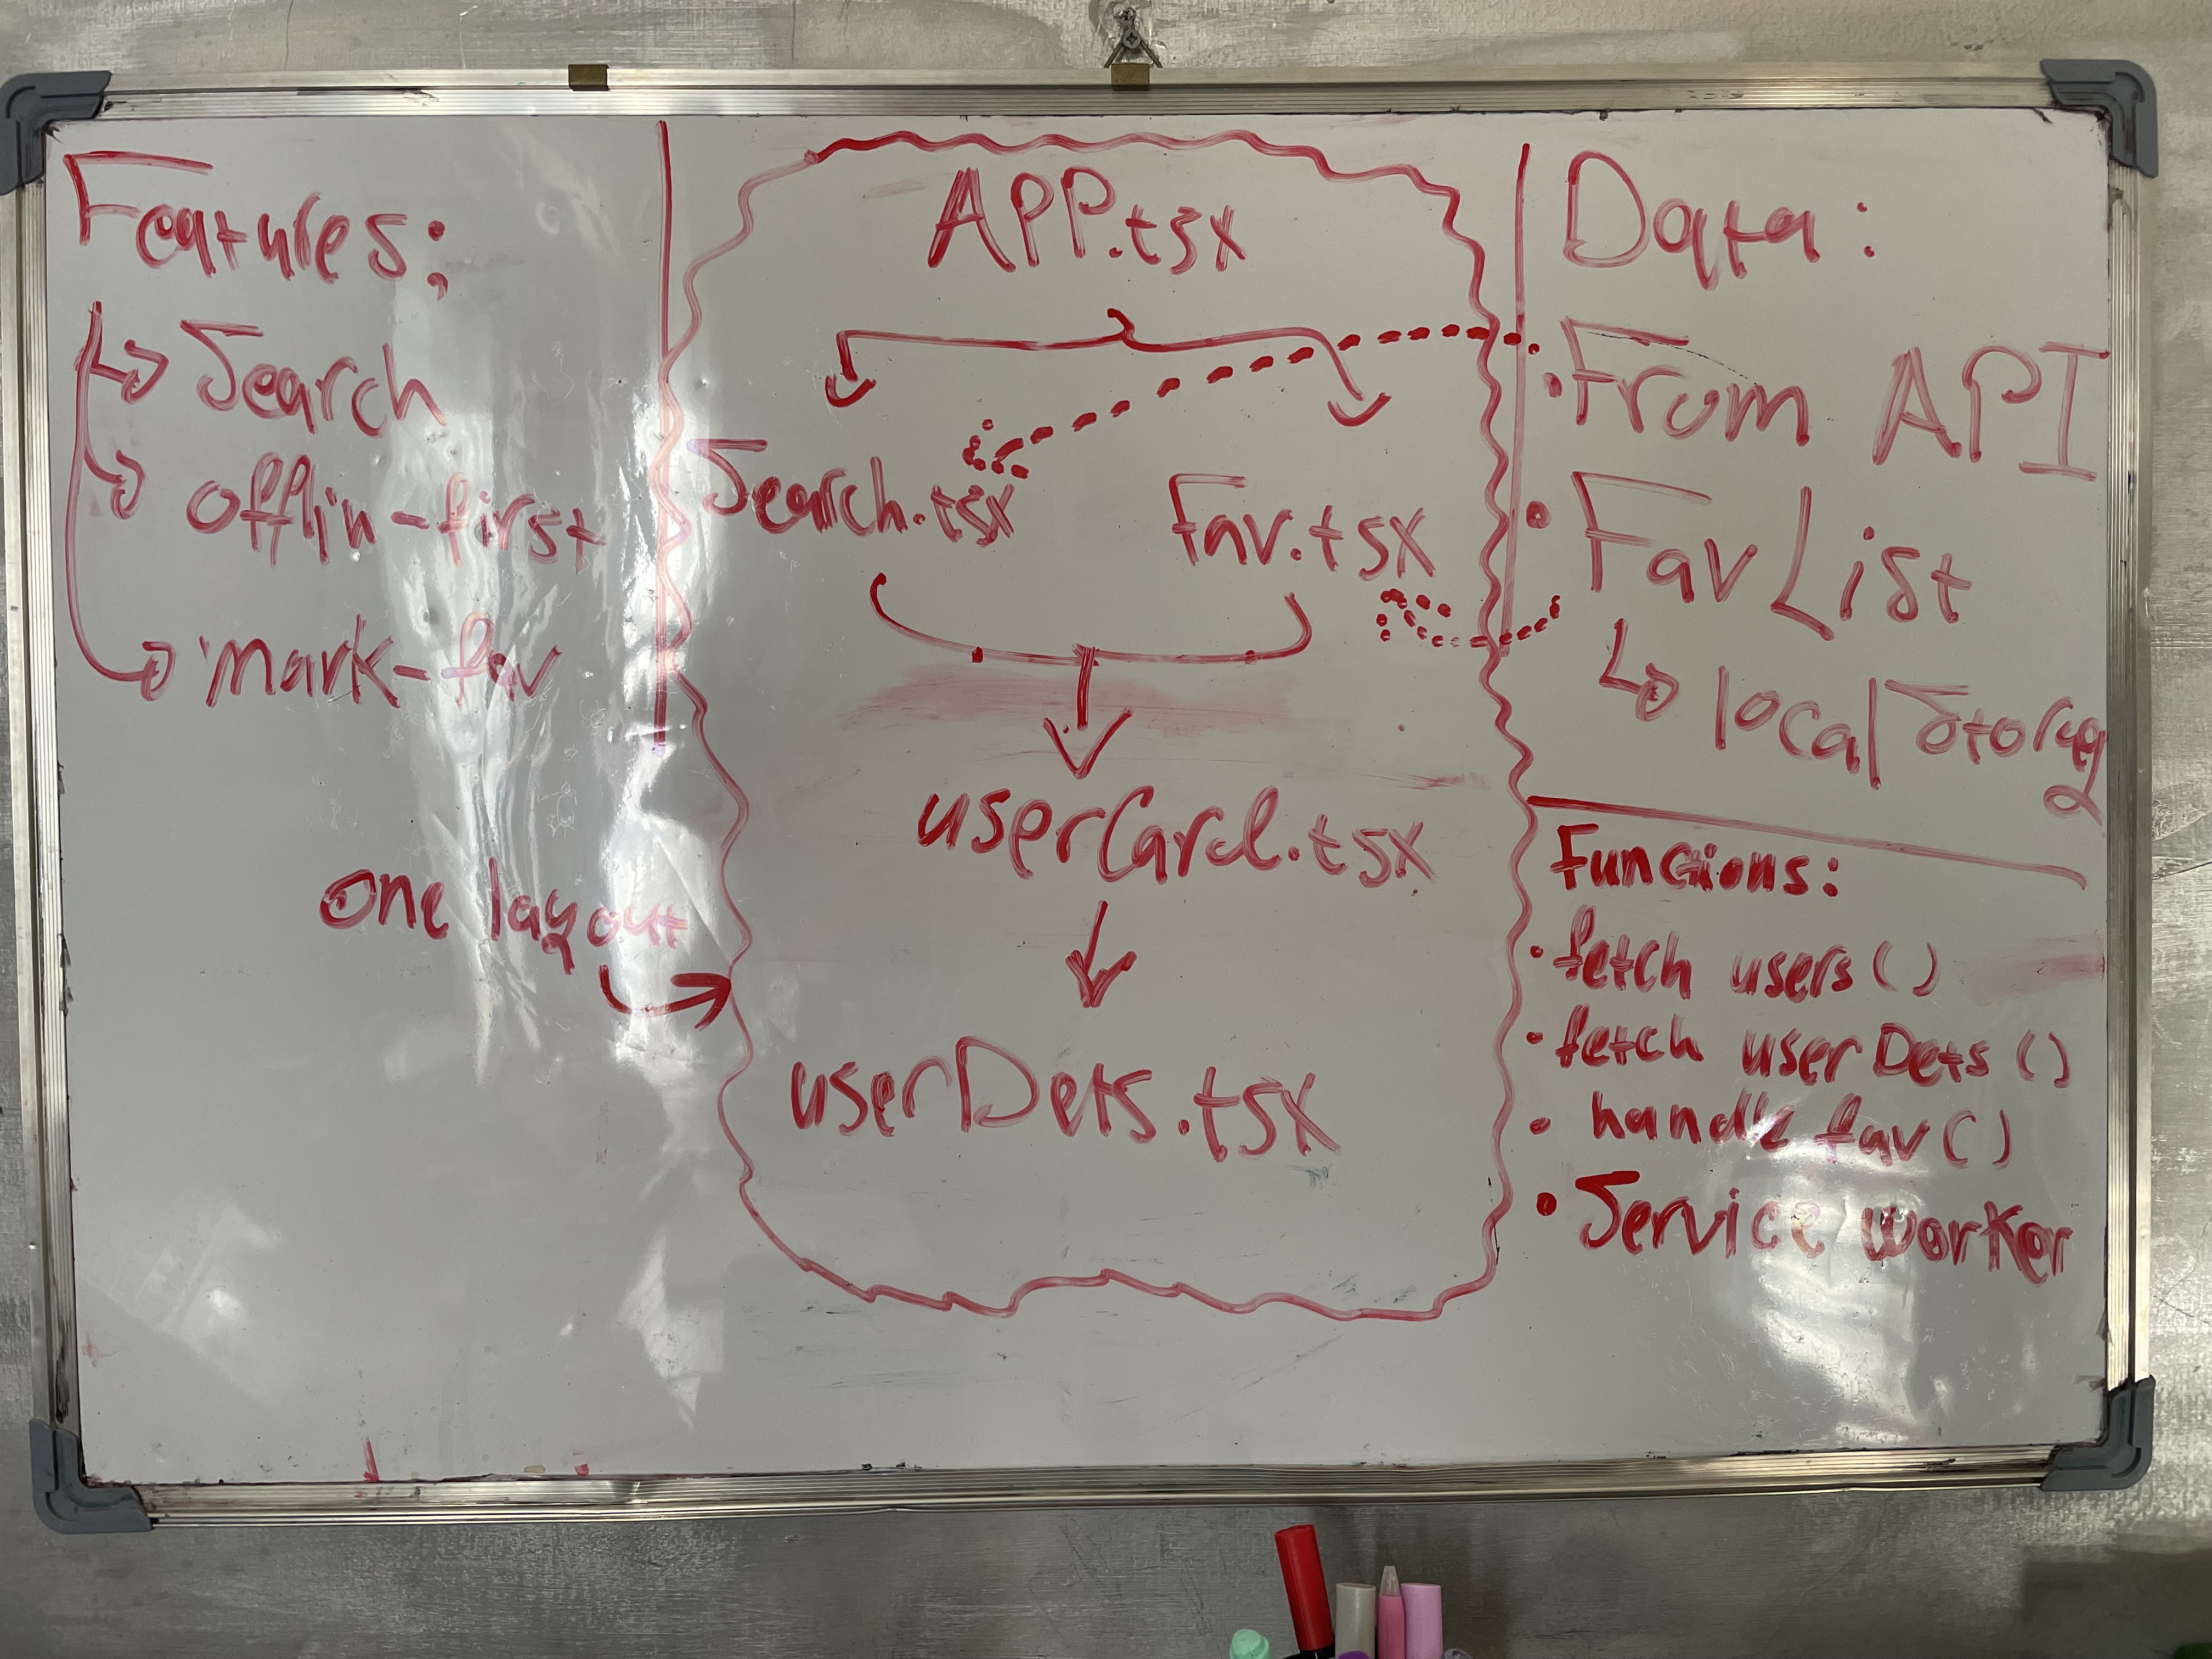 Features:
Search
offlin-first
mark-fav
one layout
APP.tsx
Search.tsx
Fav.tsx
userCard.tsx
userDets.tsx
Data:
• From API
• Fav List
local Storage
Functions:
• fetch users ()
• fetch userDets ()
• handle fav ()
• Service worker